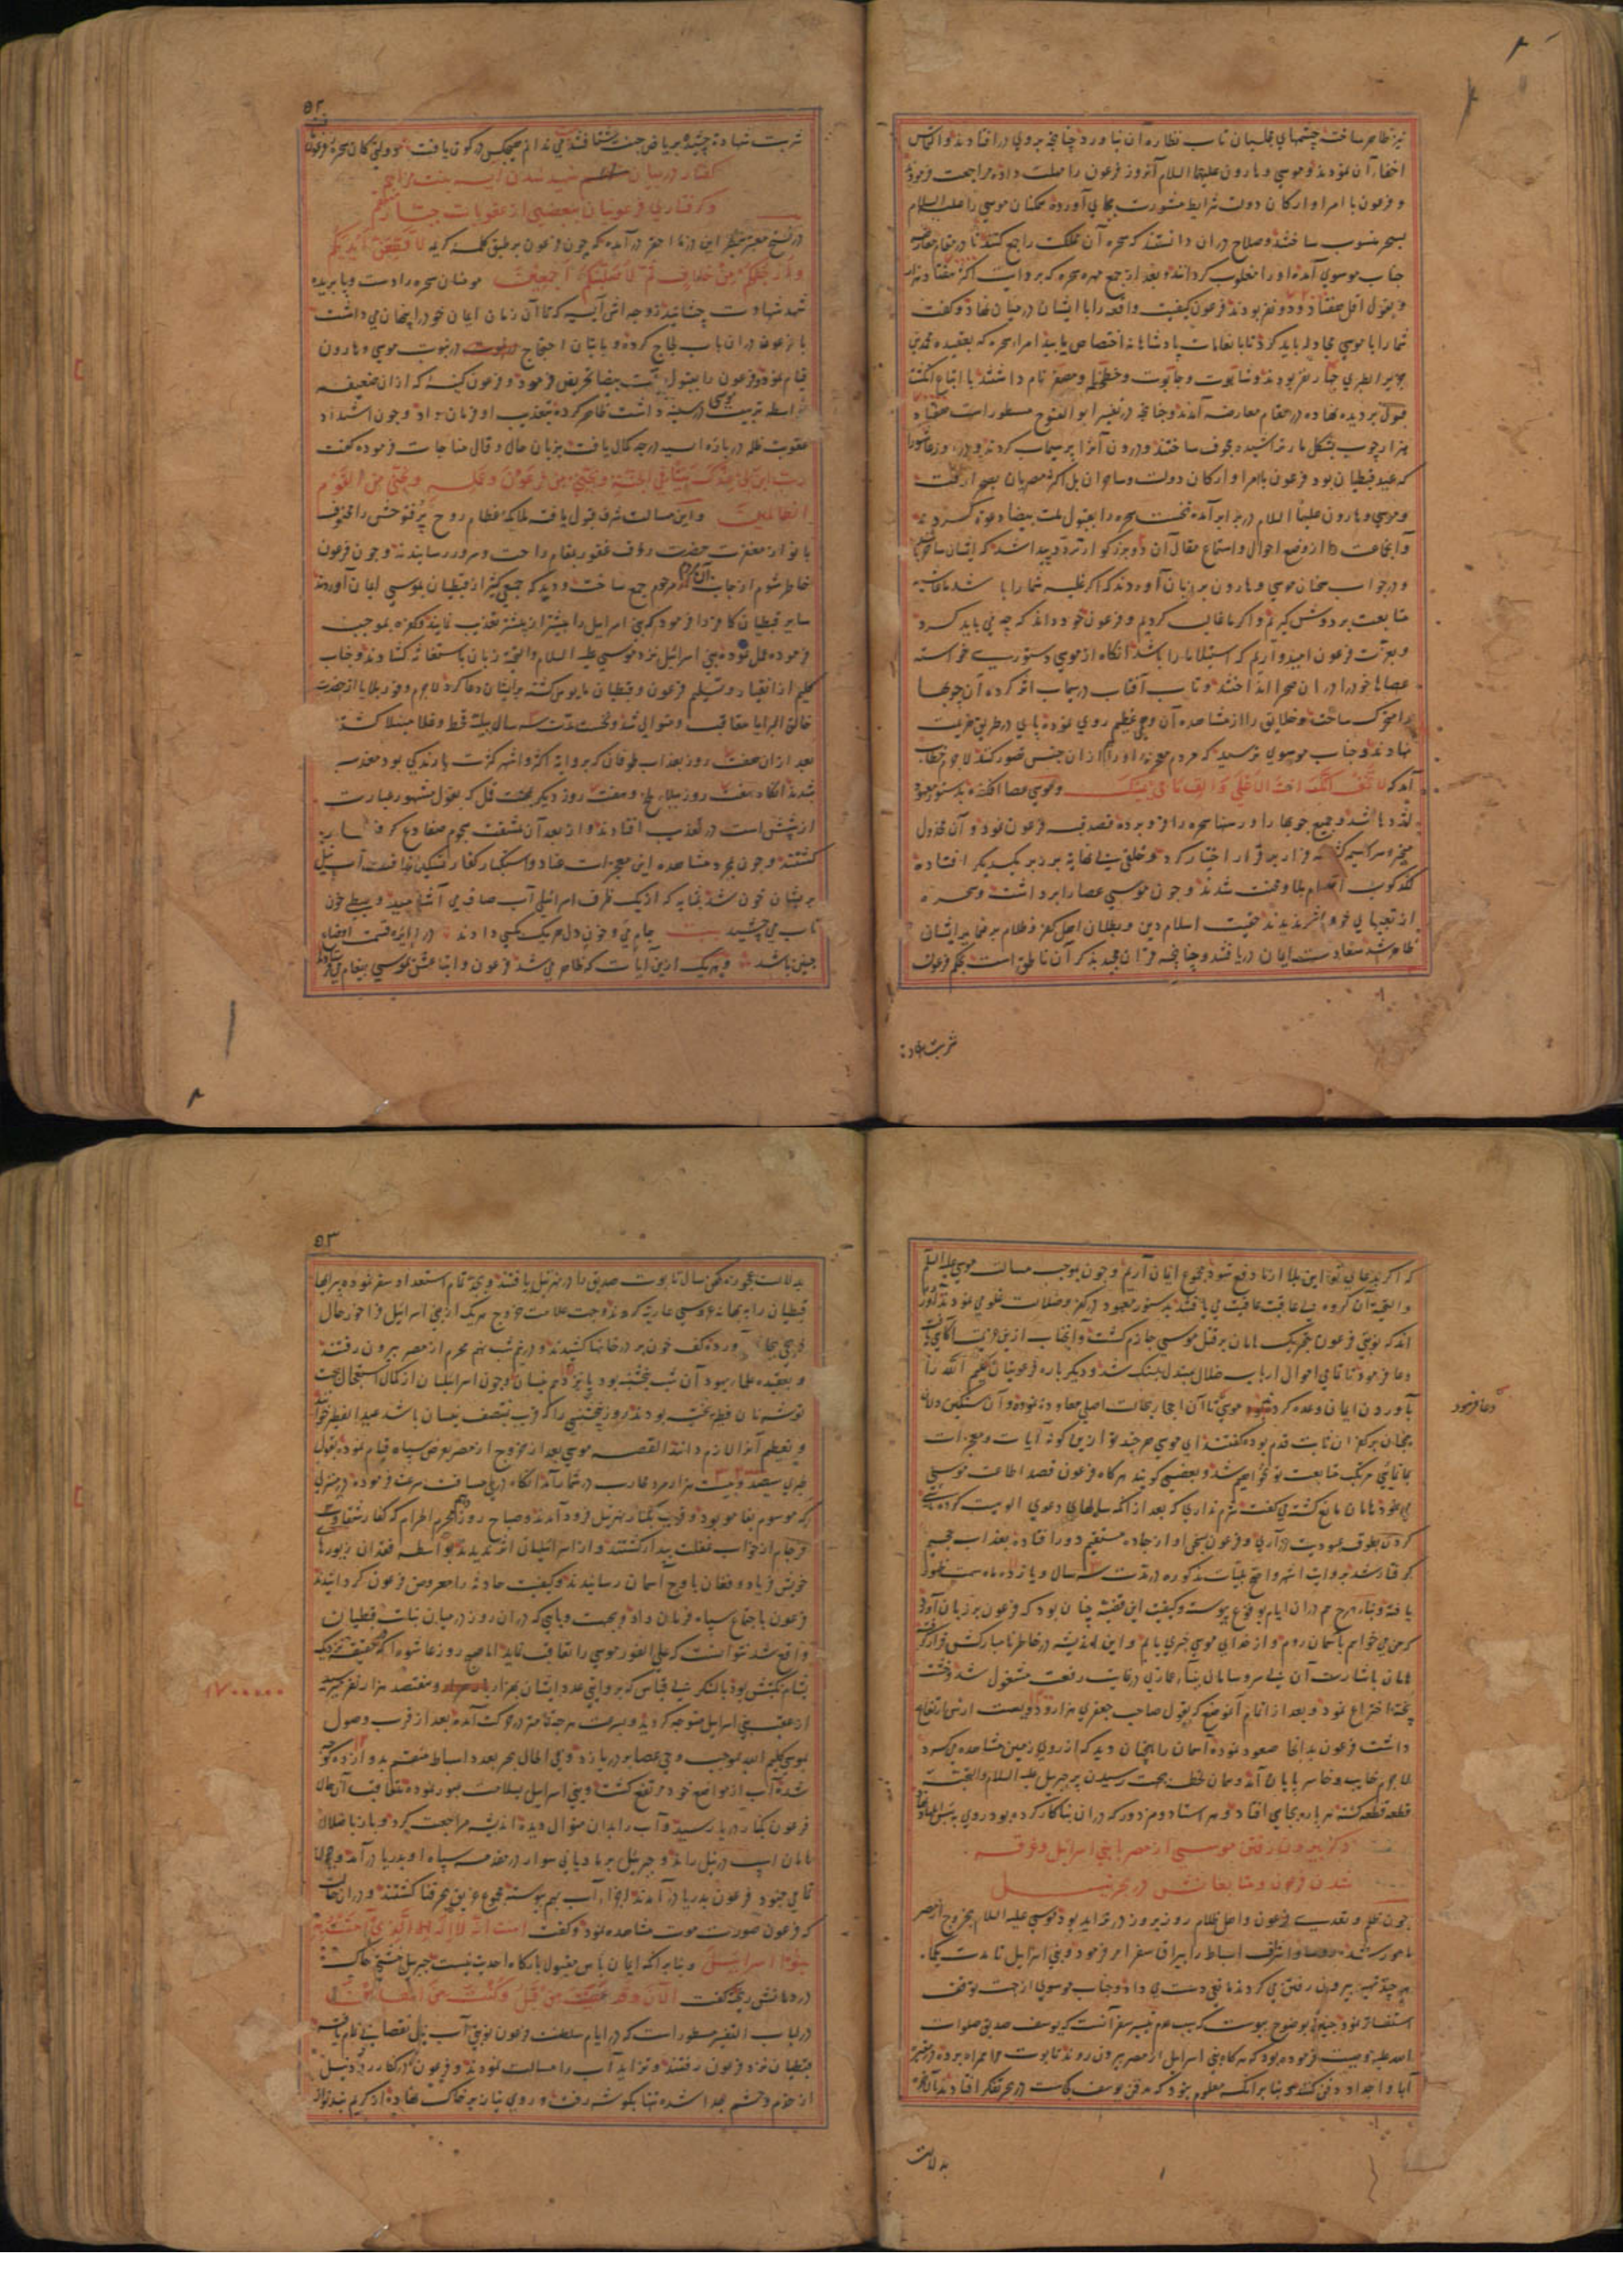 نیز ظاهر ساخت چشمهای مجلسیان تاب نظاره آن نیاورد چنانچه بروی در افتادند و التماس
اخفاء آن نمودند و موسی و هارون علیهما السلام آنروز فرعون را مهلت داده مراجعت فرمودند
و فرعون با امرا و ارکان دولت شرایط مشورت بجای آورده سخنان موسی را علیه السلام
بسحر منسوب ساختند و صلاح در ان دانستند که سحره آن مملکت را جمع کنند تا در مقام معارضه
جناب موسوی آمده او را مغلوب گردانند و بعد از جمع مهره سحره که بروایت اکثر هفتاد هزار
و بقول اقل هفتاد و دو نفر بودند فرعون کیفیت واقعه را با ایشان در میان نهاد و گفت
شما را با موسی مجادله باید کرد تا بانعامات پادشاهانه اختصاص یابید امراء سحره که بعقیده محمد بن
جریر الطبری چهار نفر بودند و شابوت و جابوت و خطخط و مصفر نام داشتند با اتباع انگشت
قبول بر دیده نهاده در مقام معارضه آمدند و چنانچه در تفسیر ابو الفتوح مسطور است هفتاد
هزار چوب بشکل مار تراشیده مجوف ساختند و درون آنرا پر سیماب کردند و در روز عاشورا
که عید قبطیان بود فرعون با امرا و ارکان دولت و ساحران بل اکثر مصریان بصحرا رفت
و موسی و هارون علیهما السلام در برابر آمده نخست سحره را بقبول ملت بیضا دعوت کردند
و آنجماعت را از وضع احوال و استماع مقال آن دو بزرگوار تردد پیدا شد که ایشان ساحرند
و در جواب سخنان موسی و هارون بر زبان آوردند که اگر غلبه شما را باشد ما غاشیه
متابعت بر دوش گیریم و اگر ما غالب گردیم و فرعون خود داند که چه می باید کرد
و بعزت فرعون امیدواریم که استیلا ما را باشد آنگاه از موسی دستوری خواسته
عصاها خود را در ان صحرا انداختند و تاب آفتاب در سیماب اثر کرده آن چوبها
را متحرک ساخت و خلایق را از مشاهده آن وهمی عظیم روی نموده پای در طریق هزیمت
نهادند و جناب موسوی ترسید که مردم معجزه او را از ان جنس تصور کنند لاجرم خطاب
آمد که لا تخف انک انت الاعلی و الق ما فی یمینک و موسی عصا افکنده بدستور معهود
اژدها شد و جمیع چوبها را و رسنها سحره را فرو برده قصد قبه فرعون نمود و آن مخذول
متحیر و سراسیمه گشته فرار بر قرار اختیار کرد و خلقی بی نهایه بر زبر یکدیگر افتاده
لگدکوب اقدام بلا و محنت شدند و چون موسی عصا را برداشت و سحره
از تعبهای خود اثر ندیدند حقیت اسلام دین و بطلان اهل کفر و ظلام بر ضمایر ایشان
ظاهر شد سعادت ایمان دریافتند و چنانچه قران مجید بذکر آن ناطق است بحکم فرعون
شربت شهادة
۵۲
شربت شهادة چشیده بریاض جنت شتافتند می ندانم هیچکس در کون یافت موولتی کان سحره فرعون
گفتار در بیان شهید شدن آسیه بنت مزاحم
و گرفتاری فرعونیان ببعضی از عقوبات جبار منتقم
در نسخ معتبره بنظر این ذره احقر در آمده که چون فرعون بر طبق کلمه کریمه لا قطعن ایدیکم
و ارجلکم من خلاف ثم لاصلبنکم اجمعین مومنان سحره را دست و پا بریده
شهد شهادت چشانید زوجه اش آسیه که تا آن زمان ایمان خود را پنهان می داشت
با فرعون در ان باب لجاج کرده و باتیان احتجاج در ثبوت نبوت موسی و هارون
قیام نمود و فرعون را بقبول ملت بیضا تحریض فرمود و فرعون کینه که از ان ضعیفه
بواسطه تربیت موسی در سینه داشت ظاهر کرده بتعذیب او فرمان داد و چون اشتداد
عقوبت ظلمه در باره آسیه درجه کمال یافت بزبان حال و قال مناجات فرموده گفت
رب ابن لی عندک بیتا فی الجنة و نجنی من فرعون و عمله و نجنی من القوم
الظالمین و این مسالت شرف قبول یافته ملائکه عظام روح پر فتوحش را محفوف
بانوار مغفرت حضرت رؤف غفور بمقام راحت و سرور رسانیدند و چون فرعون
خاطر شوم از جانب آن مرحومه جمع ساخت و دید که جمعی کثیر از قبطیان بموسی ایمان آوردند
سایر قبطیان کافر را فرمود که بنی اسرائیل را بیشتر از پیشتر تعذیب نمایند و کفره بموجب
فرموده عمل نموده بنی اسرائیل نزد موسی علیه السلام والتحیة زبان باستغاثه گشادند و جناب
کلیم از انقیاد و تسلیم فرعون و قبطیان مایوس گشته بر ایشان دعا کرد لاجرم وفور بلایا از حضرت
خالق البرایا متعاقب و متوالی شد و نخست مدت سه سال ببلیه قحط و غلا مبتلا گشته
بعد از ان هفت روز بعذاب طوفان که بروایة اکثر و اشهر کثرت بارندگی بود معذب
شدند آنگاه هفت روز ببلاء ملخ و هفت روز دیگر بمحنت قمل که بقول مشهور عبارت
از شپش است در تعذیب افتادند و از بعد آن بمشقت هجوم ضفادع گرفتار
گشتند و چون بمجرد مشاهده این معجزات عناد و استکبار کفار تسکین نیافت آب نیل
بر ایشان خون شد بمثابه که از یک ظرف اسرائیلی آب صاف می آشامید و قبطی خون
ناب می چشید بیت جام می و خون دل هر یک بکسی دادند در دایره قسمت اوضاع
چنین باشد و بهر یک ازین آیات که ظاهر می شد فرعون و اتباعش بموسی پیغام میفرستادند
که اگر بدعای تو این بلا از ما دفع شود مجموع ایمان آریم و چون بموجب مسالت موسی علیه السلام
والتحیة آن گروه بی عاقبت عافیت می یافتند بدستور معهود در کفر و ضلالت غلو می نمودند آورده
اند که نوبتی فرعون بتحریک هامان بر قتل موسی جازم گشت و آنجناب ازین عزیمت آگاهی یافته
دعا فرمود تا تمامی اموال ارباب ضلال مبدل بسنگ شد و دیگر باره فرعونیان کلیم الله را
بآوردن ایمان وعده کرده موسی تا آن احجار بحالت اصلی معاودت نموده و آن سنگین دلان
همچنان بر کفران ثابت قدم بوده گفتند ای موسی هر چند تو ازین گونه آیات و معجزات
بما نمایی مرتکب متابعت تو نخواهیم شد و بعضی گویند هر گاه فرعون قصد اطاعت موسی
می نمود هامان مانع گشته می گفت شرم نداری که بعد از انکه سالهای دعوی الوهیت کرده باشی
گردن بطوق عبودیت در آری و فرعون بسخن او از جاده مستقیم دور افتاده بعذاب جحیم
گرفتار شد و بروایت اشهر و اصح بلیات مذکوره در مدت سه سال و یازده ماه سمت ظهور
یافته و بناء صرح هم در ان ایام بوقوع پیوسته و کیفیت این قضیه چنان بود که فرعون بر زبان آورد
که من می خواهم باسمان روم و از خدای موسی خبری یابم و این اندیشه در خاطر نامبارکش قرار گرفته
هامان باشارت آن بی سر و سامان ببناء عمارتی در غایت رفعت مشغول شد و خشت
پخته اختراع نمود و بعد از اتمام آنموضع که بقول صاحب جعفری هزار و دویست ارش ارتفاع
داشت فرعون بدانجا صعود نموده آسمان را همچنان دید که از روی زمین مشاهده می کرد
لاجرم خایب و خاسر پایان آمد و همان لحظه بجهت رسیدن پر جبریل علیه السلام والتحیة
قطعه قطعه گشته هر پاره بجایی افتاد و هر استاد و مزدور که در ان بنا کار کرده بود روی
ذکر بیرون رفتن موسی از مصر با بنی اسرائیل و غرقه
شدن فرعون و متابعانش در بحر نیل
چون ظلم و تعدی فرعون و اهل ظلام روز بروز در تزاید بود موسی علیه السلام بخروج از مصر
مامور شده رؤسا و اشراف اسباط را بیراق سفر امر فرمود و بنی اسرائیل تا مدت یکماه
هر چند تهیه بیرون رفتن می کردند مانعی دست می داد و جناب موسوی از جهت توقف
استفسار نمود چنین بوضوح پیوست که سبب عدم تیسیر سفر آنست که یوسف صدیق صلوات
الله علیه وصیت فرموده بود که هرگاه بنی اسرائیل از مصر بیرون روند تابوت مرا همراه برده در مقبره
آبا و اجداد دفن کنند و بنا بر انکه معلوم نبود که مدفن یوسف کجاست در بحر تفکر افتادند
دعا فرمود
بدلالت
۵۳
بدلالت عجوزه کهن سال تابوت صدیق را در نهر نیل یافتند و بجد تمام استعداد سفر نموده پیرایها
قبطیان را به بهانه عروسی عاریه کردند و جهت علامت خروج هر یک از بنی اسرائیل فراخور حال
آورده کف خون بر در خانها کشیدند و در نیم شب نهم محرم از مصر بیرون رفتند
و بعقیده علماء یهود آن شب پنجشنبه بود پانزدهم نیسان و چون اسرائیلیان از کمال استعجال جهت
توشه نان فطیر پخته بودند روز پنجشنبی را که قریب بنصف نیسان باشد عید الفطیر خوانند
و تعظیم آنرا لازم دانند القصه موسی بعد از خروج از مصر بعرض سپاه قیام نموده بقول
طبری سیصد و بیست هزار مرد محارب در شمار آمد آنگاه در طی مسافت سرعت فرموده در منزلی
که موسوم بفا موبود و قریب بکنار نهر نیل فرود آمدند و صباح روز نهم محرم الحرام که کفار شقاوت
فرجام از خواب غفلت بیدار گشتند و از اسرائیلیان اثر ندیدند بواسطه فقدان زیورها
خویش فریاد و فغان باوج اسمان رسانیدند و کیفیت حادثه را معروض فرعون گردانیدند
فرعون باجتماع سپاه فرمان داد و بجهت وبایی که در ان روز در میان بنات قبطیان
واقع شد نتوانست که علی الفور موسی را تعاقب نماید اما صبح روز عاشورا که
بشام نکبتش بود با لشکر بی قیاس که بروایتی عدد ایشان بهزار هزار و هفتصد هزار نفر می رسید
۱۷۰۰۰۰۰
از عقب بنی اسرائیل متوجه گردید و بسرعت هر چه تمامتر در حرکت آمده بعد از قرب وصول
موسی کلیم الله بموجب وحی عصا بر دریا زد و فی الحال بحر بعدد اسباط منقسم بدوازده کوچه
شده آب از مواضع خود مرتفع گشت و بنی اسرائیل بسلامت عبور نموده متعاقب آن حال
فرعون بکنار دریا رسید و آب را بدان منوال دیده اندیشه مراجعت کرد و باز باضلال
هامان اسپ در نیل راند و جبریل بر مادیانی سوار در مقدمه سپاه او بدریا در آمد و چون
تمامی جنود فرعون بدریا در آمدند اجزاء آب بهم پیوسته مجموع غریق بحر فنا گشتند و در ان حالت
که فرعون صورت موت مشاهده نمود گفت امنت انه لا اله الا الذی آمنت به
بنوا اسرائیل و بنا بر انکه ایمان یاس مقبول بارگاه احدیت نیست جبریل مشتی خاک
در دهانش ریخته گفت الآن و قد عصیت من قبل و کنت من المفسدین
در لباب التفسیر مسطور است که در ایام سلطنت فرعون نوبتی آب نیل نقصان تمام یافته
قبطیان نزد فرعون رفتند و تزاید آب را مسالت نمودند و فرعون در کنار رود نیل
از خدم و حشم جدا شده تنها بگوشه رفت و روی نیاز بر خاک نهاده از کریم بنده نواز